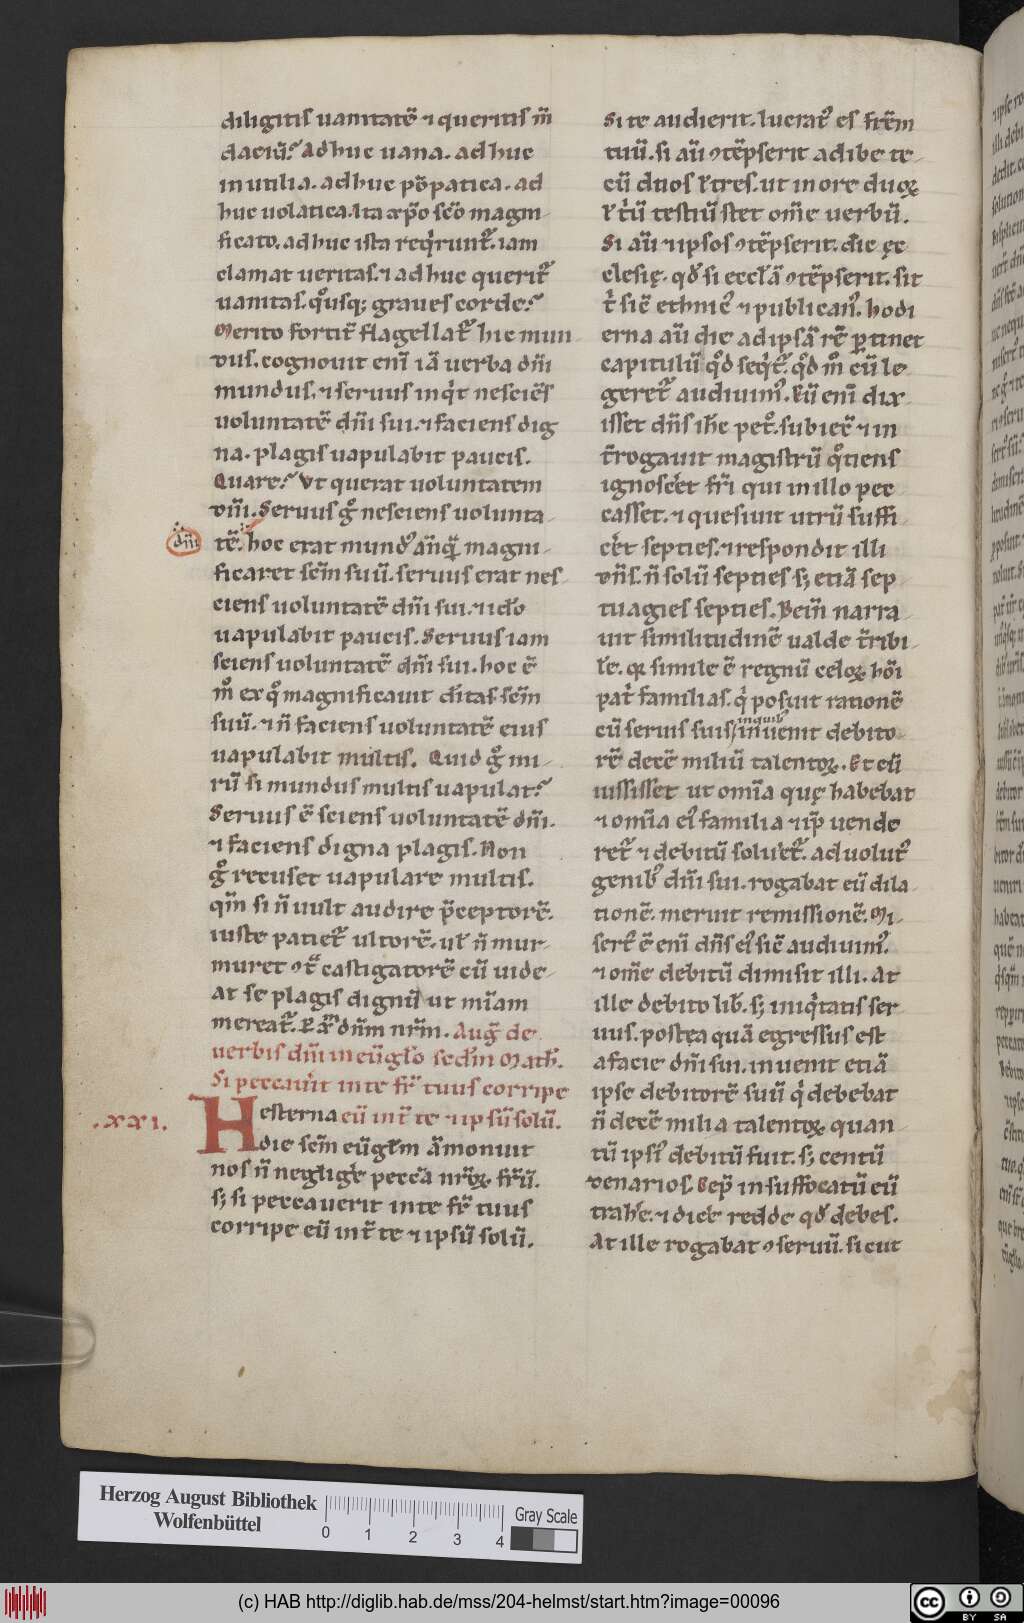 diligitis uanitatē ⁊ queritis m̄
daciū? Adhuc uana. adhuc
inutilia. adhuc pōpatica. ad
huc uolatica. Ita xp̄o sc̄o magni
ficato. adhuc ista req̇runt̃. iam
clamat ueritas. ⁊ adhuc querit̃
uanitas. q̊usq; graues corde?
Merito fortit̃ flagellat̃ hic mun
dus. cognouit enī iā uerba dn̄i
mundus. ⁊ seruus inq̇t nesciēs
uoluntatē dn̄i sui. ⁊ faciens dig
na. plagis uapulabit paucis.
Quare? Vt querat uoluntatem
dn̄i. Seruus g̊ nesciens uolunta
dn̄i
tē. hoc erat mund᷒ anq̃ magni
ficaret sc̄m suū. seruus erat nes
ciens uoluntatē dn̄i sui. ⁊ ido
uapulabit paucis. Seruus iam
sciens uoluntatē dn̄i sui. hoc ē
m̊ ex q̊ magnificauit ditas sc̄m
suū. ⁊ n̄ faciens uoluntatē eius
uapulabit multis. Quid g̊ mi
rū si mundus multis uapulat?
Seruus ē sciens uoluntatē dn̄i.
⁊ faciens digna plagis. Non
g̊ recuset uapulare multis.
qm̄ si n̄ uult audire p̄ceptorē.
iuste patiet̃ ultorē. ul̃ n̄ mur
muret ꝯt̃ castigatorē cū uide
at se plagis dignū ut mīam
mereat̃. P xp̄m dn̄m nr̄m. Aug̃ de
uerbis dn̄i in eūglo scdm Math̃.
Si peccau̓it in te fr̃ tuus corripe
.XXI. Hesterna eū int̃ te ⁊ ipsū solū.
die sc̄m eūglm āmonuit
nos n̄ neglig̓e pecca nr̃oꝝ fr̃ū.
s; si peccauerit in te fr̃ tuus
corripe eū int̃ te ⁊ ipsū solū.
Si te audierit. lucrat᷒ es frēm
tuū. si aū ꝯtēpserit adibe te
cū duos ł tres. ut in ore duoꝝ
ł t̓ū testiū stet om̄e uerbū.
Si aū ⁊ ipsos ꝯtēpserit. dic ęc
clesię. qd̓ si eccl̃ā ꝯtēpserit. sit
t̓ sic̄ ethnic᷒ ⁊ publican᷒. hodi
erna aū die ad ipsā rē ꝑtinet
capitulū q̊d seq̇t̃. q̊d m̊ cū le
geret̃ audiuim᷒. Cū enī dix
isset dn̄s ih̄c pet̊. subiecē ⁊ in
t̃rogauit magistrū q̊tiens
ignosc̓et fr̃i qui in illo pec
casset. ⁊ quesiuit utrū suffi
c̓et septies. ⁊ respondit illi
dn̄s. n̄ solū septies s; etiā sep
tuagies septies. Dein̄ narra
uit similitudinē ualde t̃ribi
lē. qꝛ simile ē regnū celoꝝ hōi
pat̓ familias. q̓ posuit rationē
cū seruis suis / in quib᷒ inuenit debito
rē decē miliū talentoꝝ. Et cū
iussisset ut om̄ia quę habebat
⁊ om̄ia ei᷒ familia ⁊ ip̄ uende
ret̃ ⁊ debitū solu̓et̃. aduolut᷒
genib᷒ dn̄i sui. rogabat cū dila
tionē. meruit remissionē. Mi
sert᷒ ē enī dn̄s ei᷒ sic̄ audiuim᷒.
⁊ om̄e debitū dimisit illi. At
ille debito lib̓. s; iniq̇tatis ser
uus. postea quā egressus est
a facie dn̄i sui. inuenit etiā
ipse debitorē suū q̓ debebat
n̄ decē milia talentoꝝ quan
tū ipsi᷒ debitū fuit. s; centū
denarios. Cep̄ in suffocatū cū
trah̓e. ⁊ dic̓e redde qd̓ debes.
At ille rogabat ꝯseruū. sicut
Herzog August Bibliothek
Wolfenbüttel
0 1 2 3 4
Gray Scale
(c) HAB http://diglib.hab.de/mss/204-helmst/start.htm?image=00096
cc BY SA